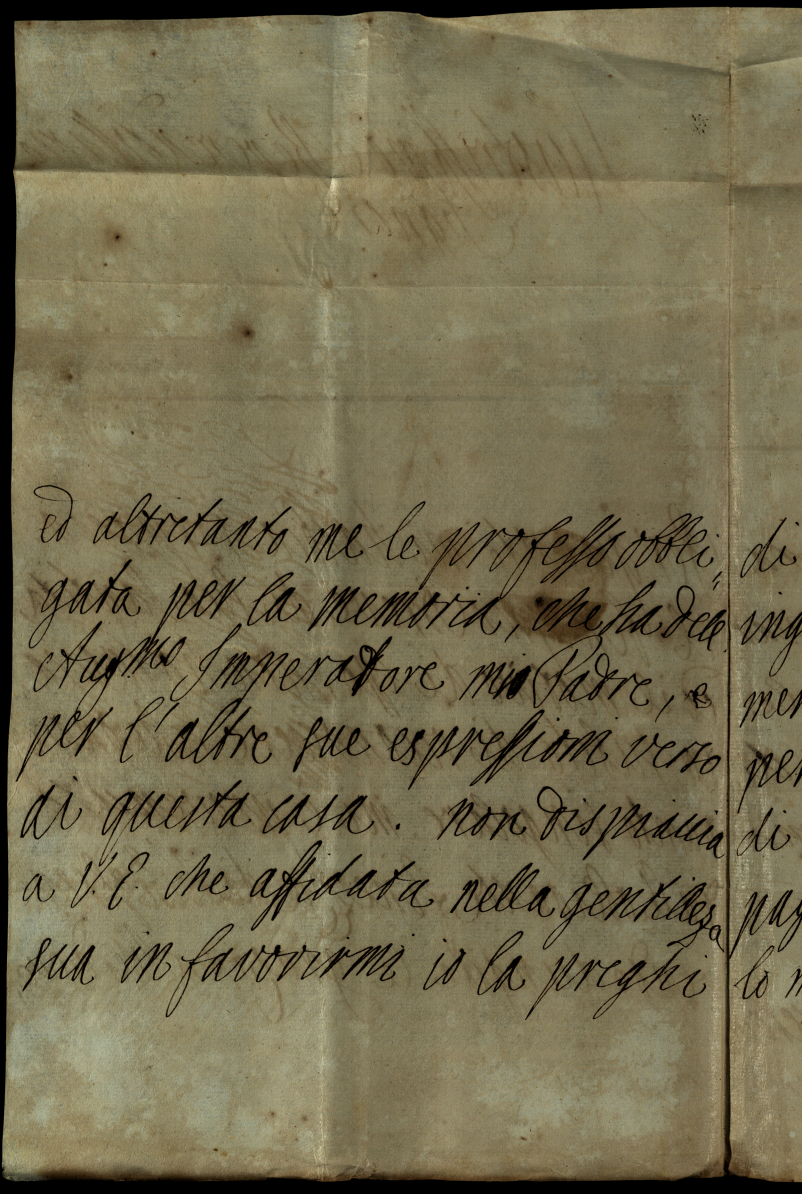 ed altretanto me le professo obbli„
gata per la memoria, che ha dell'
Augmo Imperatore mio Padre, e
per l'altre sue espressioni verso
di questa casa. non dispiaccia
a V. E. che affidata nella gentilesa
sua in favorirmi io la preghi
di
ing
mer
per
di
pag
lo